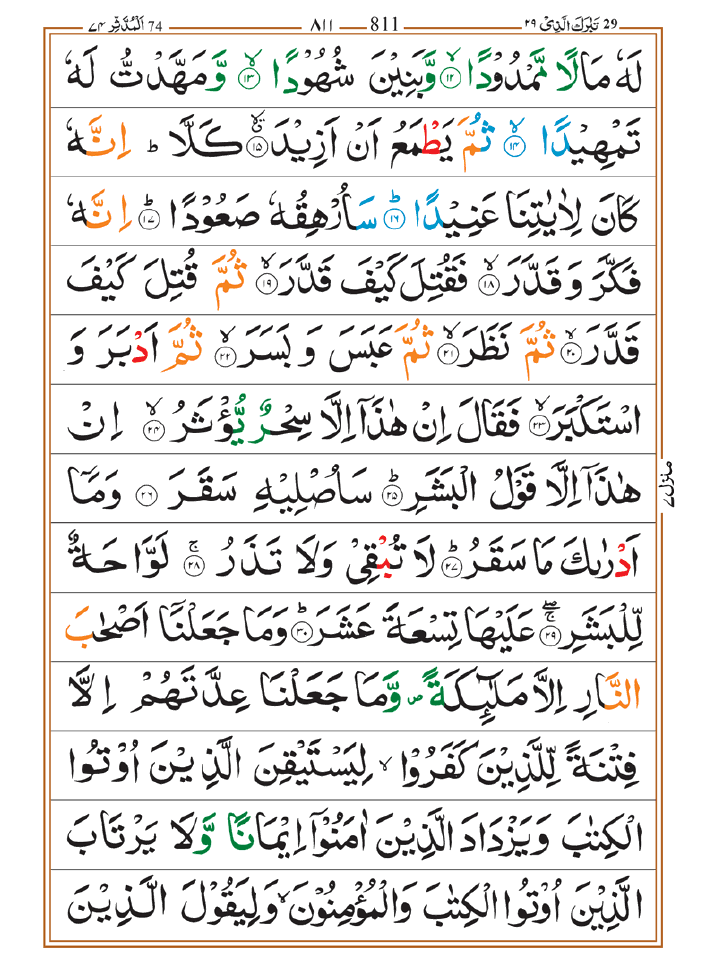 29 تَبٰرَكَ الَّذِیْ ۲۹
811 ــــ ۸۱۱
74 اَلْمُدَّثِّر ۷۴
لَهٗ مَالًا مَّمْدُوْدًا ۙ‏﴿۱۲﴾ وَّبَنِیْنَ شُهُوْدًا ۙ‏﴿۱۳﴾ وَّمَهَّدْتُّ لَهٗ
تَمْهِیْدًا ۙ‏﴿۱۴﴾ ثُمَّ یَطْمَعُ اَنْ اَزِیْدَ ۗۙ‏﴿۱۵﴾ كَلَّا ؕ اِنَّهٗ
كَانَ لِاٰیٰتِنَا عَنِیْدًا ؕ‏﴿۱۶﴾ سَاُرْهِقُهٗ صَعُوْدًا ؕ‏﴿۱۷﴾ اِنَّهٗ
فَكَّرَ وَ قَدَّرَ ۙ‏﴿۱۸﴾ فَقُتِلَ كَیْفَ قَدَّرَ ۙ‏﴿۱۹﴾ ثُمَّ قُتِلَ كَیْفَ
قَدَّرَ ۙ‏﴿۲۰﴾ ثُمَّ نَظَرَ ۙ‏﴿۲۱﴾ ثُمَّ عَبَسَ وَ بَسَرَ ۙ‏﴿۲۲﴾ ثُمَّ اَدْبَرَ وَ
اسْتَكْبَرَ ۙ‏﴿۲۳﴾ فَقَالَ اِنْ هٰذَاۤ اِلَّا سِحْرٌ یُّؤْثَرُ ۙ‏﴿۲۴﴾ اِنْ
هٰذَاۤ اِلَّا قَوْلُ الْبَشَرِ ؕ‏﴿۲۵﴾ سَاُصْلِیْهِ سَقَرَ ﴿۲۶﴾ وَمَاۤ
اَدْرٰىكَ مَا سَقَرُ ؕ‏﴿۲۷﴾ لَا تُبْقِیْ وَلَا تَذَرُ ۚ‏﴿۲۸﴾ لَوَّاحَةٌ
لِّلْبَشَرِ ۖۚ‏﴿۲۹﴾ عَلَیْهَا تِسْعَةَ عَشَرَ ؕ‏﴿۳۰﴾ وَمَا جَعَلْنَاۤ اَصْحٰبَ
النَّارِ اِلَّا مَلٰٓىِٕكَةً ۪ وَّمَا جَعَلْنَا عِدَّتَهُمْ اِلَّا
فِتْنَةً لِّلَّذِیْنَ كَفَرُوْا ۙ لِیَسْتَیْقِنَ الَّذِیْنَ اُوْتُوا
الْكِتٰبَ وَیَزْدَادَ الَّذِیْنَ اٰمَنُوْۤا اِیْمَانًا وَّلَا یَرْتَابَ
الَّذِیْنَ اُوْتُوا الْكِتٰبَ وَالْمُؤْمِنُوْنَ ۙ وَلِیَقُوْلَ الَّذِیْنَ
منزل ۷